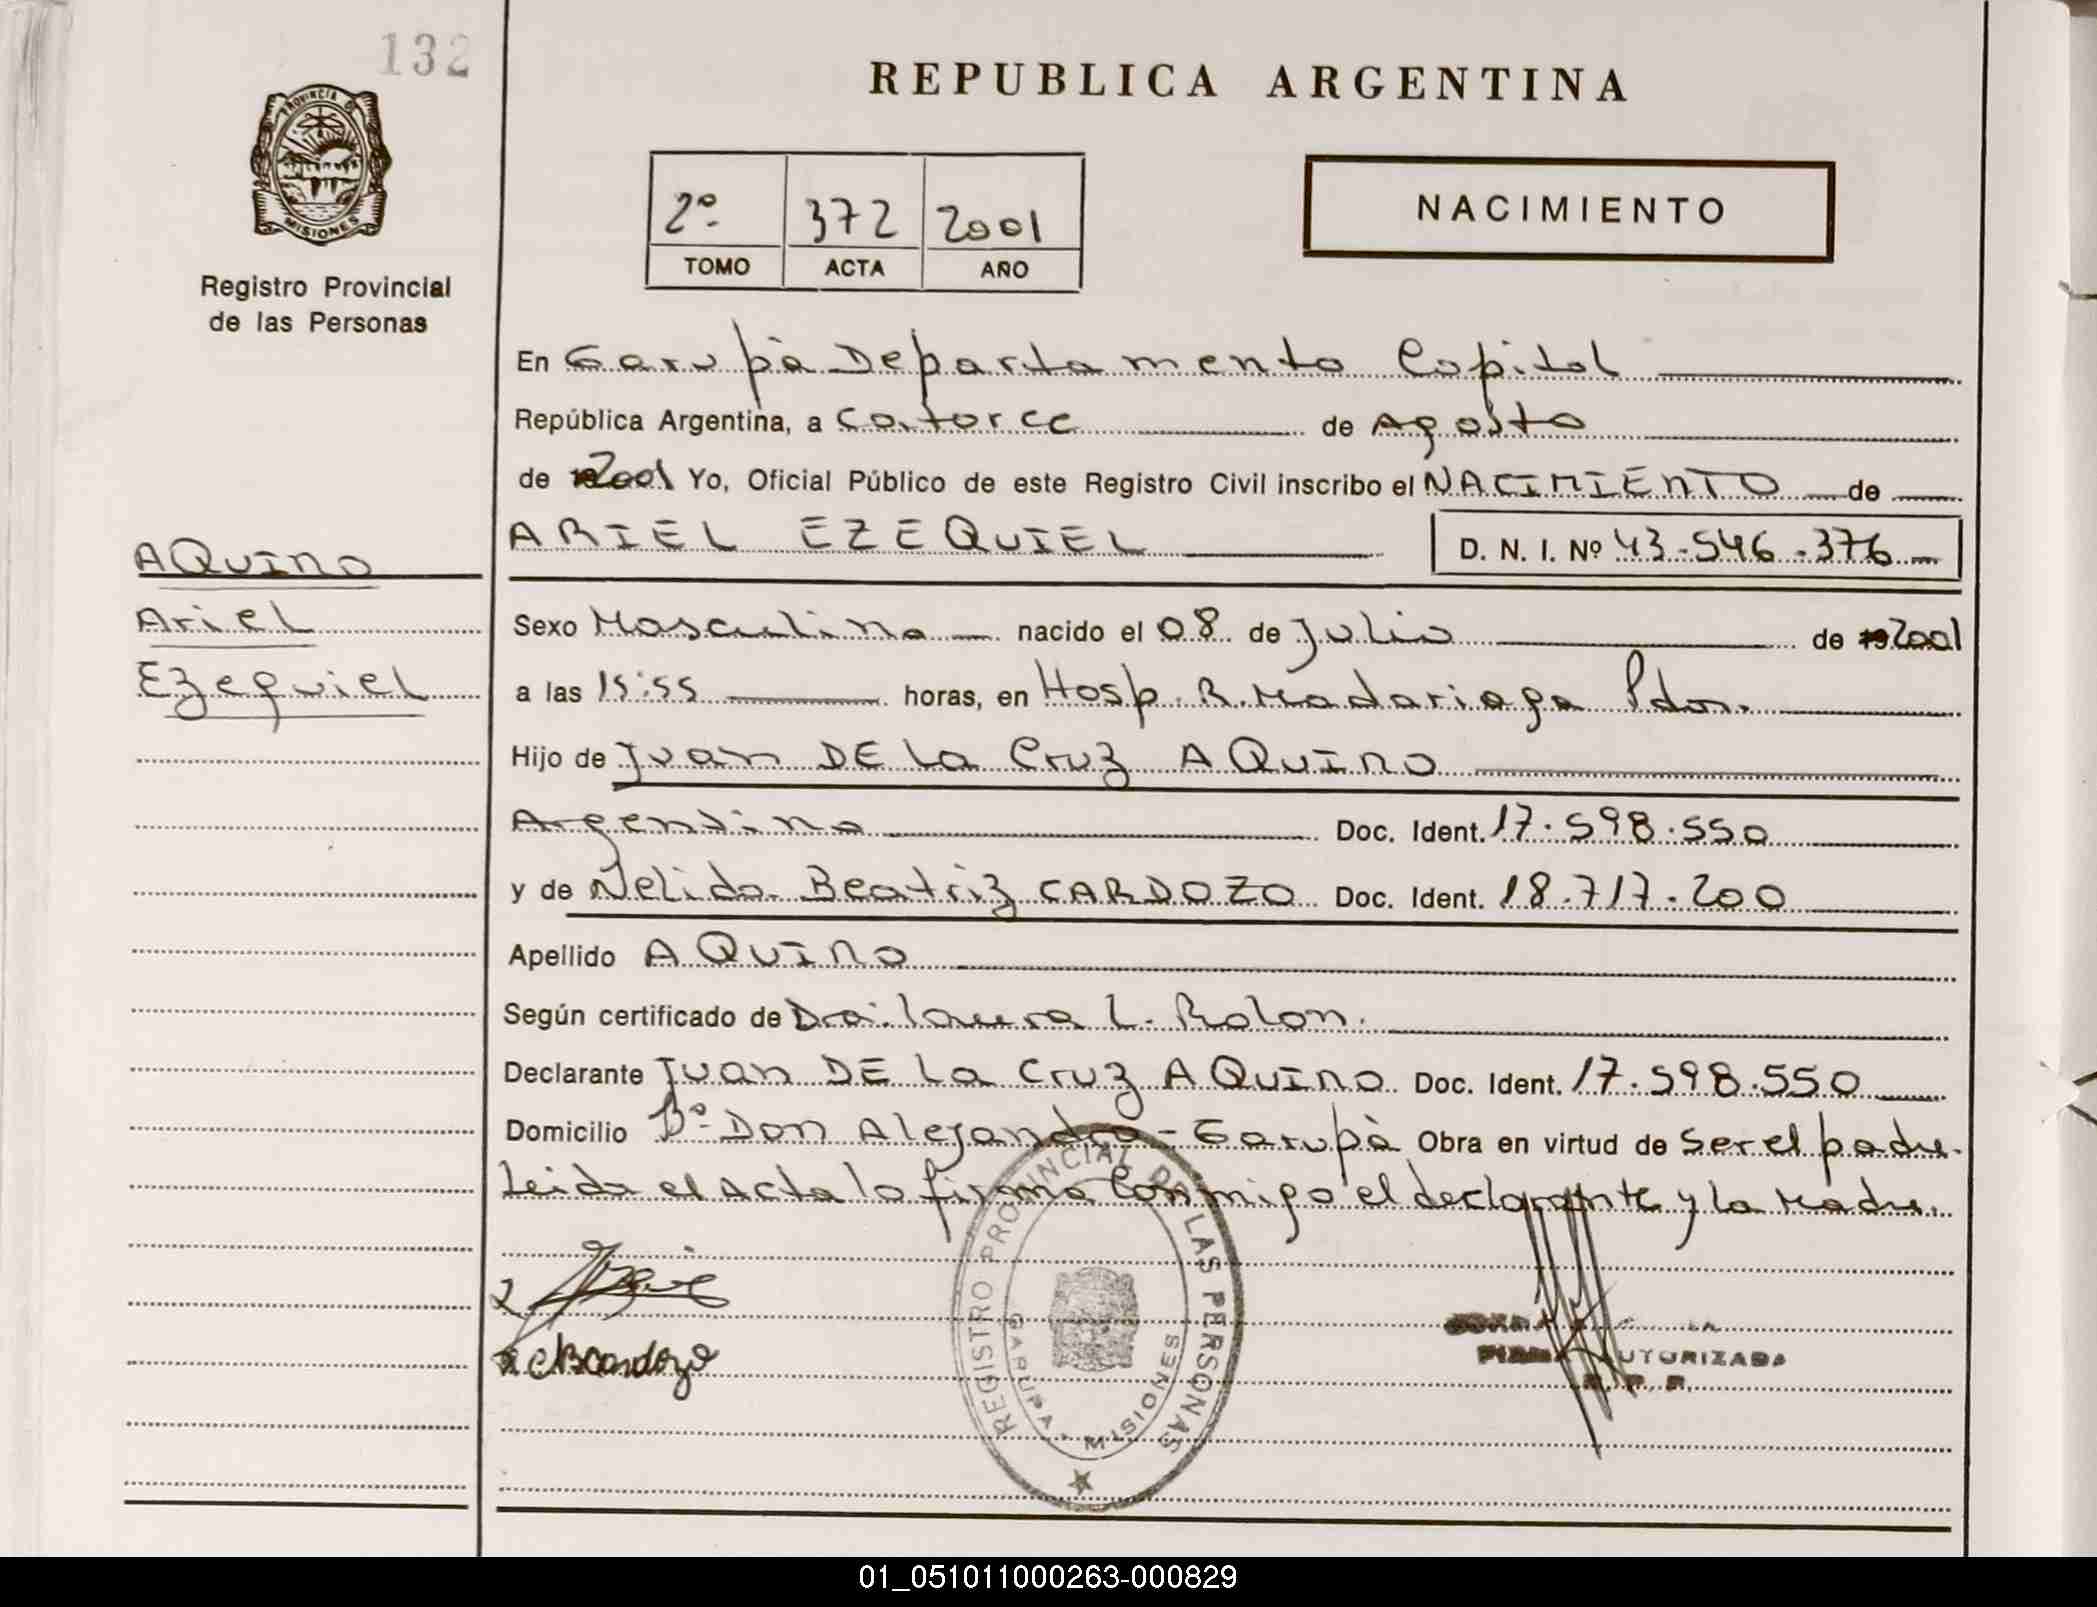 132
REPUBLICA ARGENTINA
PROVINCIA DE MISIONES
Registro Provincial
de las Personas
2º 372 2001
TOMO ACTA AÑO
NACIMIENTO
En Garupà Departamento Capital
República Argentina, a Catorce de Agosto
de 2001 Yo, Oficial Público de este Registro Civil inscribo el NACIMIENTO de
ARIEL EZEQUIEL D. N. I. Nº 43.546.376
AQUINO
Ariel
Ezequiel
Sexo Masculino nacido el 08 de Julio de 192001
a las 15:55 horas, en Hosp. R. Madariaga Pdas.
Hijo de Juan DE La Cruz AQUINO
Argentino Doc. Ident. 17.598.550
y de Nelida Beatriz CARDOZO Doc. Ident. 18.717.200
Apellido AQUINO
Según certificado de Dra. Laura L. Rolon.
Declarante Juan DE La Cruz AQUINO Doc. Ident. 17.598.550
Domicilio Bº Don Alejandro - Garupà Obra en virtud de Ser el padre.
Leida el Acta lo firma Conmigo el declarante y la Madre.
REGISTRO PROVINCIAL DE LAS PERSONAS
GARUPA - MISIONES
NBCardozo
FIRMA AUTORIZADA
R. P. P.
01_051011000263-000829